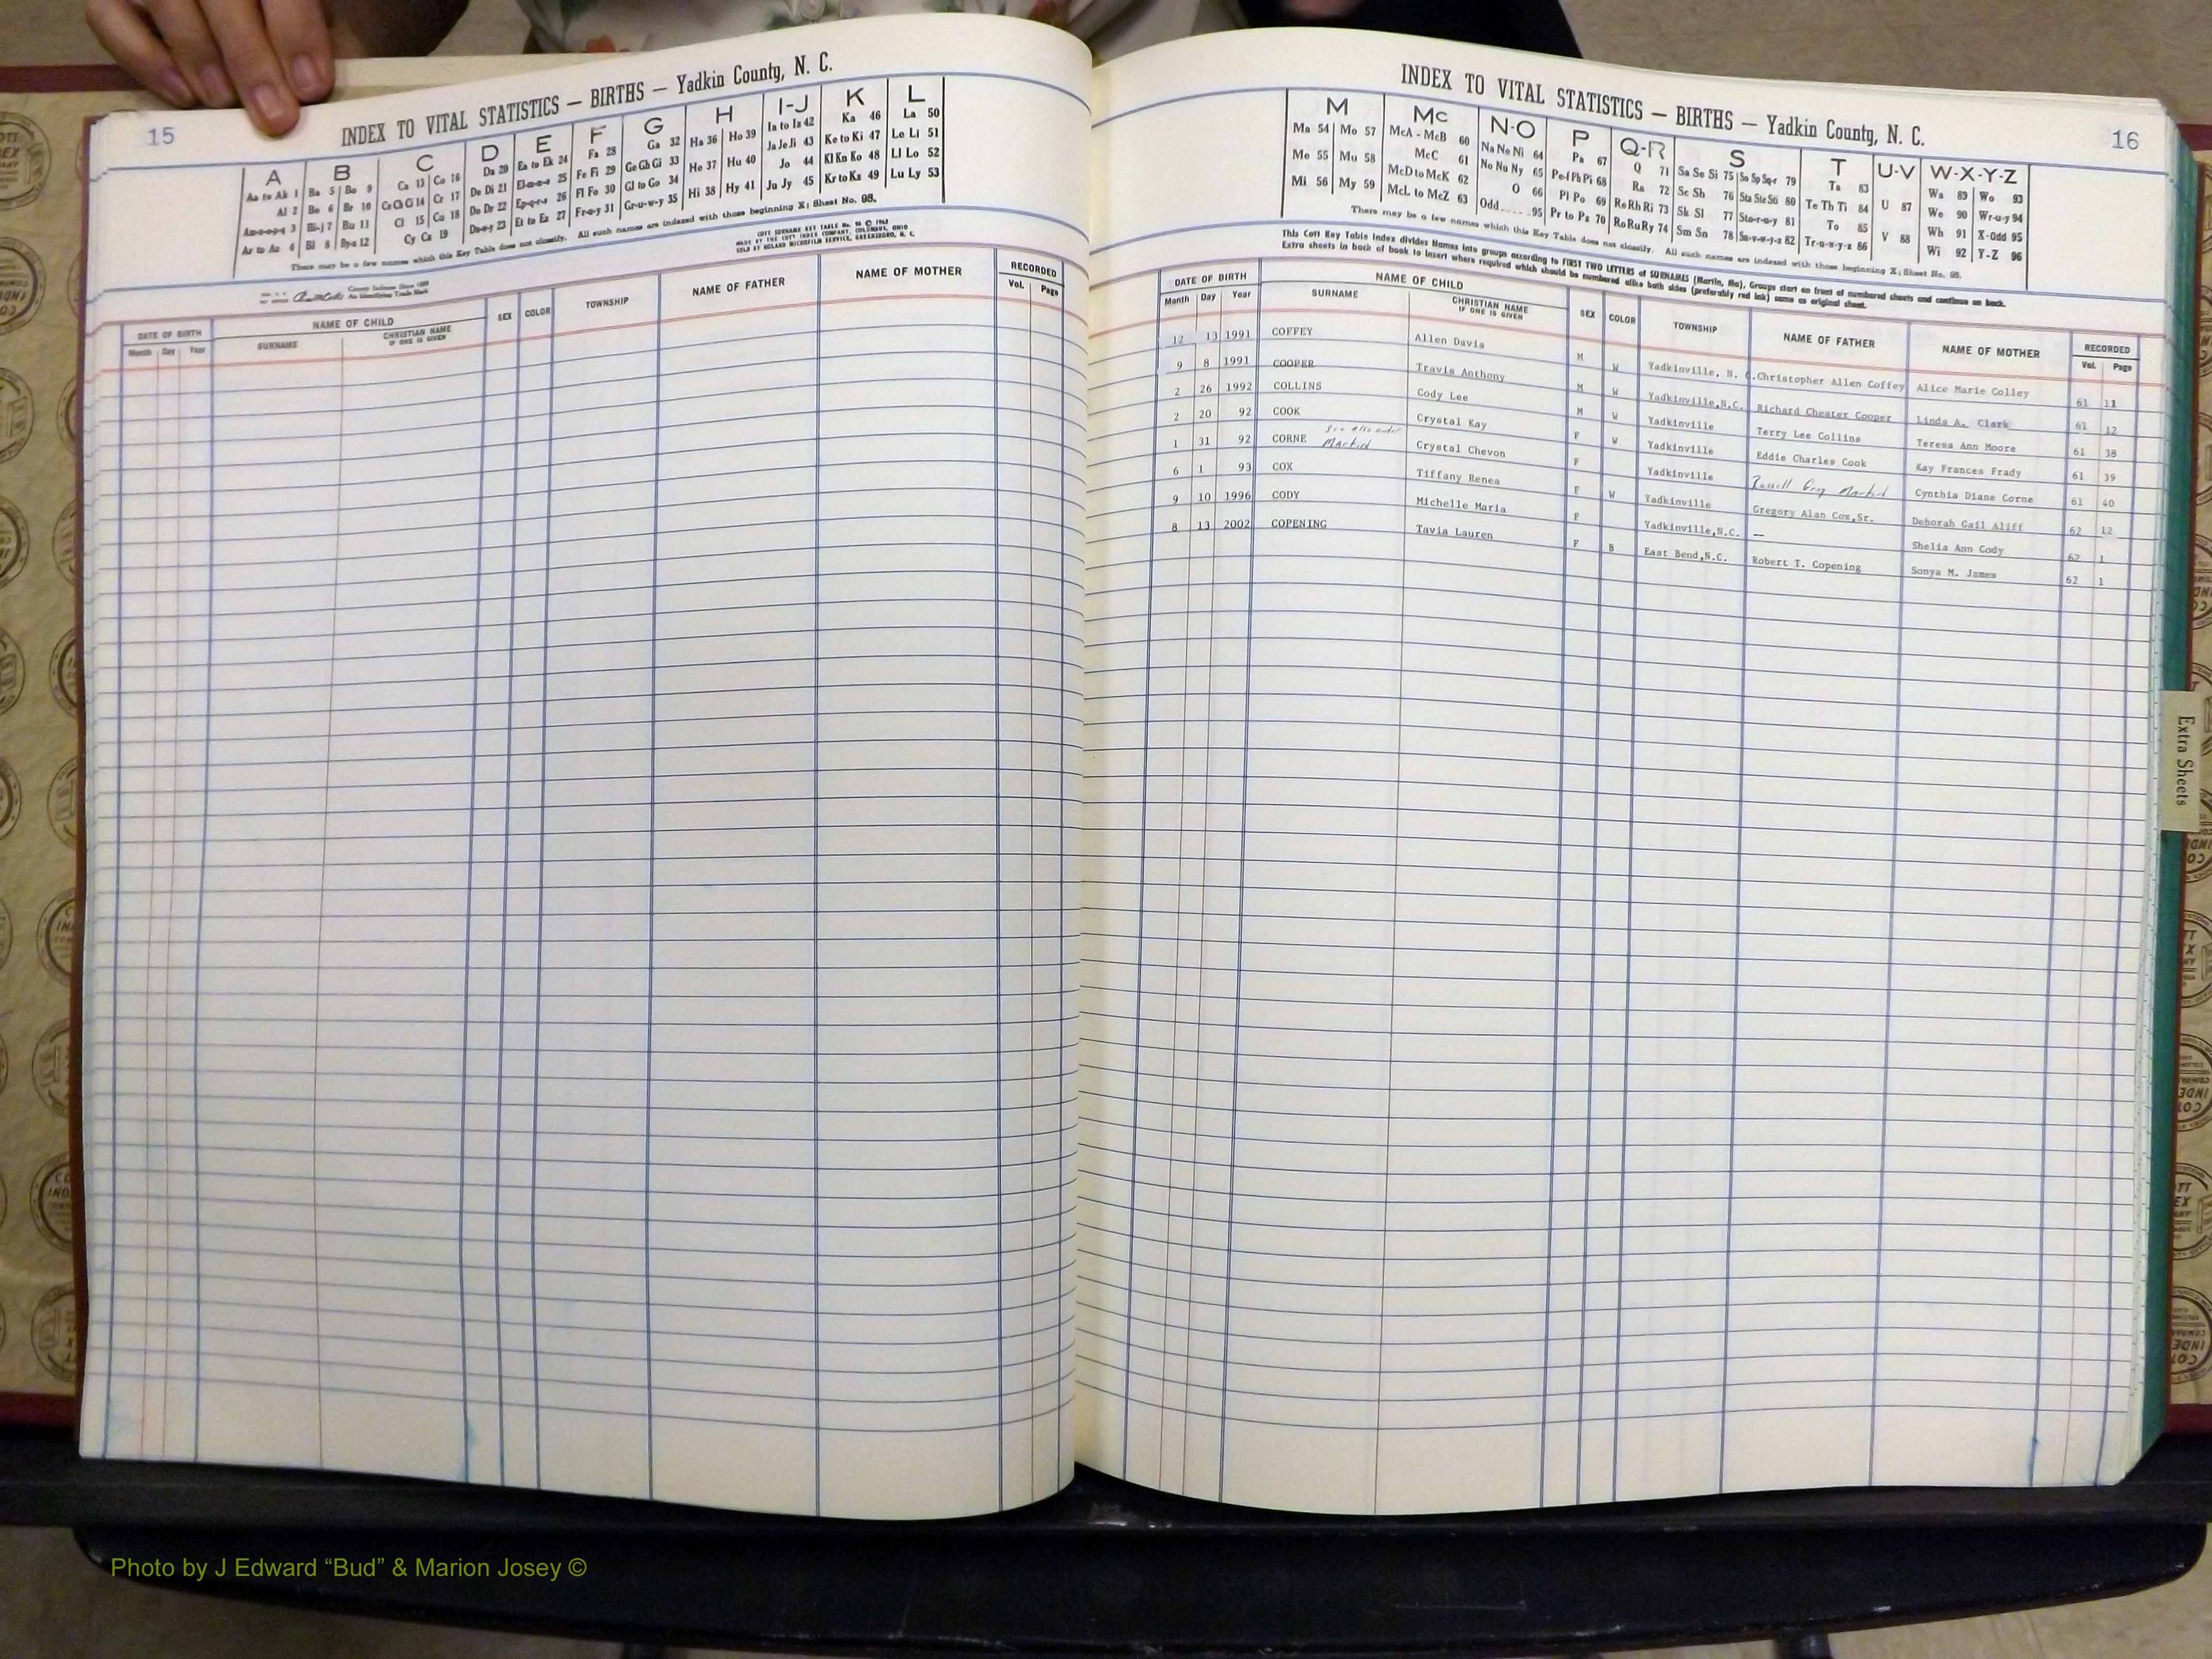 15
INDEX TO VITAL STATISTICS — BIRTHS — Yadkin County, N. C.
A B C D E F G H I-J K L
Aa to Ak 1 Ba 5 Bo 9 Ca 13 Co 16 Da 20 Ea to Ek 24 Fa 28 Ga 32 Ha 36 Ho 39 Ia to Iz 42 Ka 46 La 50
Al 2 Be 6 Br 10 Ce Ch Ci 14 Cr 17 De Di 21 El-m-n-o 25 Fe Fi 29 Ge Gh Gi 33 He 37 Hu 40 Ja Je Ji 43 Ke to Ki 47 Le Li 51
Am-n-o-p-q 3 Bi-j 7 Bu 11 Cl 15 Cu 18 Do Dr 22 Ep-q-r-s 26 Fl Fo 30 Gl to Go 34 Hi 38 Hy 41 Jo 44 Kl Kn Ko 48 Ll Lo 52
Ar to Az 4 Bl 8 By-z 12 Cy Cz 19 Du-w-y 23 Et to Ez 27 Fr-u-y 31 Gr-u-w-y 35 Ju Jy 45 Kr to Kz 49 Lu Ly 53
There may be a few names which this Key Table does not classify. All such names are indexed with those beginning X; Sheet No. 98.
COTT SURNAME KEY TABLE
MADE BY THE COTT INDEX COMPANY, COLUMBUS, OHIO
SOLD BY NOLAND MICROFILM SERVICE, GREENSBORO, N. C.
County Indexes Since 1888
An Identifying Trade Mark
DATE OF BIRTH NAME OF CHILD SEX COLOR TOWNSHIP NAME OF FATHER NAME OF MOTHER RECORDED
Month Day Year SURNAME CHRISTIAN NAME IF ONE IS GIVEN Vol. Page
INDEX TO VITAL STATISTICS — BIRTHS — Yadkin County, N. C.
16
M Mc N-O P Q-R S T U-V W-X-Y-Z
Ma 54 Mo 57 McA - McB 60 Na Ne Ni 64 Pa 67 Q 71 Sa Se Si 75 So Sp Sq-r 79 Ta 83 U 87 Wa 89 Wo 93
Me 55 Mu 58 McC 61 No Nu Ny 65 Pe-f Ph Pi 68 Ra 72 Sc Sh 76 Sta Ste Sti 80 Te Th Ti 84 V 88 We 90 Wr-u-y 94
Mi 56 My 59 McD to McK 62 O 66 Pl Po 69 Re Rh Ri 73 Sk Sl 77 Sto-r-u-y 81 To 85 Wh 91 X-Odd 95
McL to McZ 63 Odd 95 Pr to Pz 70 Ro Ru Ry 74 Sm Sn 78 Su-v-w-y-z 82 Tr-u-w-y-z 86 Wi 92 Y-Z 96
There may be a few names which this Key Table does not classify. All such names are indexed with those beginning X; Sheet No. 98.
This Cott Key Table Index divides Names into groups according to FIRST TWO LETTERS of SURNAMES (Martin, Ma). Groups start on front of numbered sheets and continue on back.
Extra sheets in back of book to insert where required which should be numbered alike both sides (preferably red ink) same as original sheet.
DATE OF BIRTH NAME OF CHILD SEX COLOR TOWNSHIP NAME OF FATHER NAME OF MOTHER RECORDED
Month Day Year SURNAME CHRISTIAN NAME IF ONE IS GIVEN Vol. Page
12 13 1991 COFFEY Allen Davis M W Yadkinville, N. C. Christopher Allen Coffey Alice Marie Colley 61 11
9 8 1991 COOPER Travis Anthony M W Yadkinville,N.C. Richard Chester Cooper Linda A. Clark 61 12
2 26 1992 COLLINS Cody Lee M W Yadkinville Terry Lee Collins Teresa Ann Moore 61 38
2 20 92 COOK Crystal Kay F W Yadkinville Eddie Charles Cook Kay Frances Frady 61 39
1 31 92 CORNE see also under Crystal Chevon F Yadkinville Russell Cynthia Diane Corne 61 40
6 1 93 COX Tiffany Renea F W Yadkinville Gregory Alan Cox,Sr. Deborah Gail Aliff 62 12
9 10 1996 CODY Michelle Maria F Yadkinville,N.C. — Shelia Ann Cody 62 1
8 13 2002 COPENING Tavia Lauren F B East Bend,N.C. Robert T. Copening Sonya M. James 62 1
Extra Sheets
Photo by J Edward “Bud” & Marion Josey ©